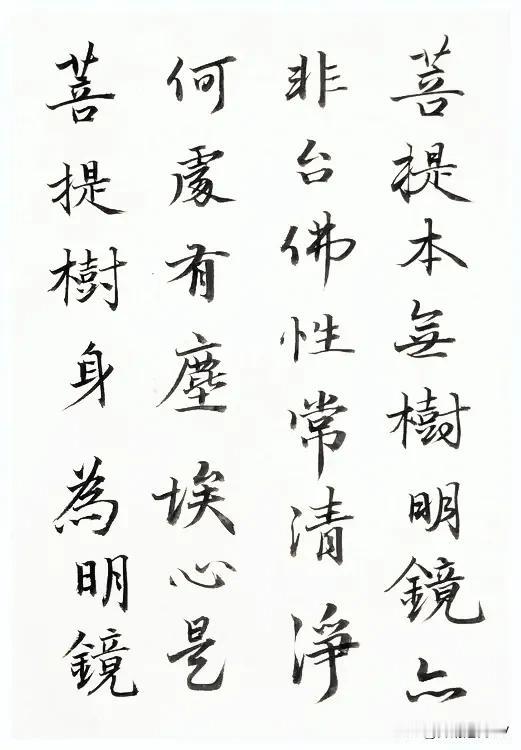 菩提本無樹明鏡亦
非台佛性常清淨
何處有塵埃心是
菩提樹身為明鏡